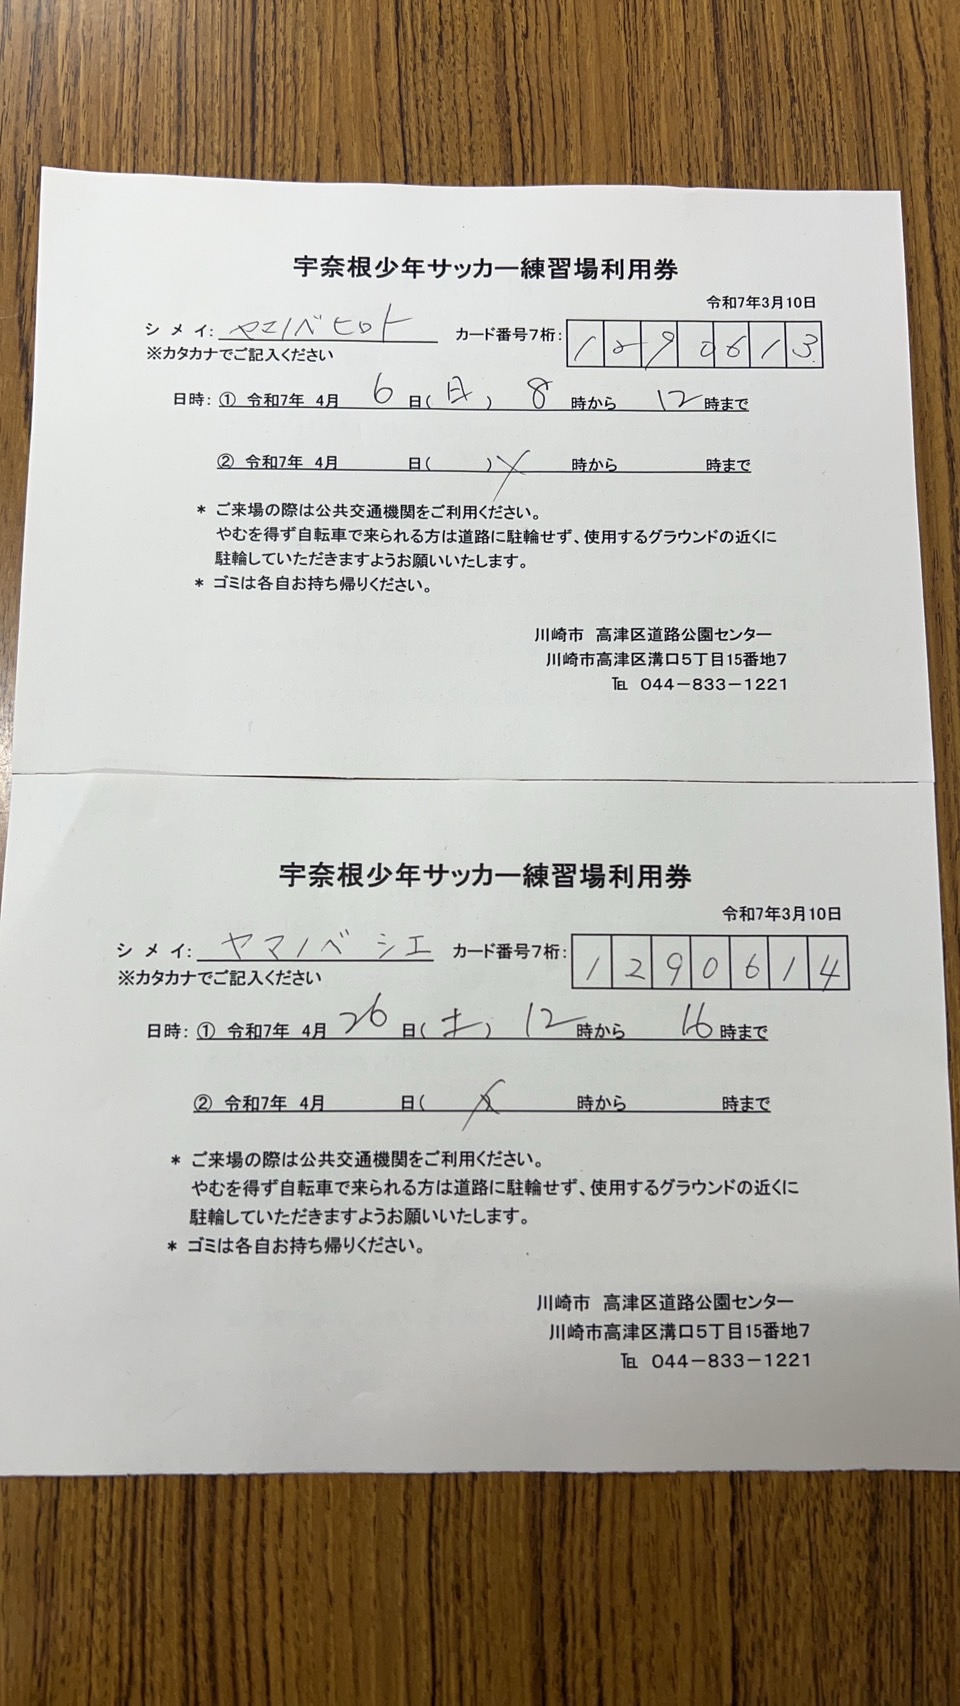 宇奈根少年サッカー練習場利用券
令和7年3月10日
シ メ イ: ヤマノベ ヒロト カード番号7桁: 1290613
※カタカナでご記入ください
日時: ① 令和7年 4月 6 日( 日 ) 8 時から 12 時まで
② 令和7年 4月 日( ) 時から 時まで
* ご来場の際は公共交通機関をご利用ください。
やむを得ず自転車で来られる方は道路に駐輪せず、使用するグラウンドの近くに
駐輪していただきますようお願いいたします。
* ゴミは各自お持ち帰りください。
川崎市 高津区道路公園センター
川崎市高津区溝口5丁目15番地7
℡ 044-833-1221
宇奈根少年サッカー練習場利用券
令和7年3月10日
シ メ イ: ヤマノベ シエ カード番号7桁: 1290614
※カタカナでご記入ください
日時: ① 令和7年 4月 26 日( 土 ) 12 時から 16 時まで
② 令和7年 4月 日( ) 時から 時まで
* ご来場の際は公共交通機関をご利用ください。
やむを得ず自転車で来られる方は道路に駐輪せず、使用するグラウンドの近くに
駐輪していただきますようお願いいたします。
* ゴミは各自お持ち帰りください。
川崎市 高津区道路公園センター
川崎市高津区溝口5丁目15番地7
℡ 044-833-1221